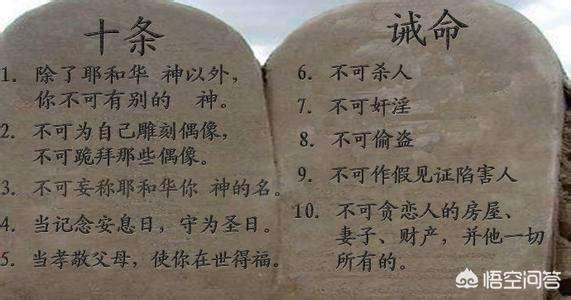 十条
1. 除了耶和华 神以外，
你不可有别的 神。
2. 不可为自己雕刻偶像，
不可跪拜那些偶像。
3. 不可妄称耶和华你 神的名。
4. 当记念安息日，守为圣日。
5. 当孝敬父母，使你在世得福。
诫命
6. 不可杀人
7. 不可奸淫
8. 不可偷盗
9. 不可作假见证陷害人
10. 不可贪恋人的房屋、
妻子、财产，并他一切
所有的。
悟空问答